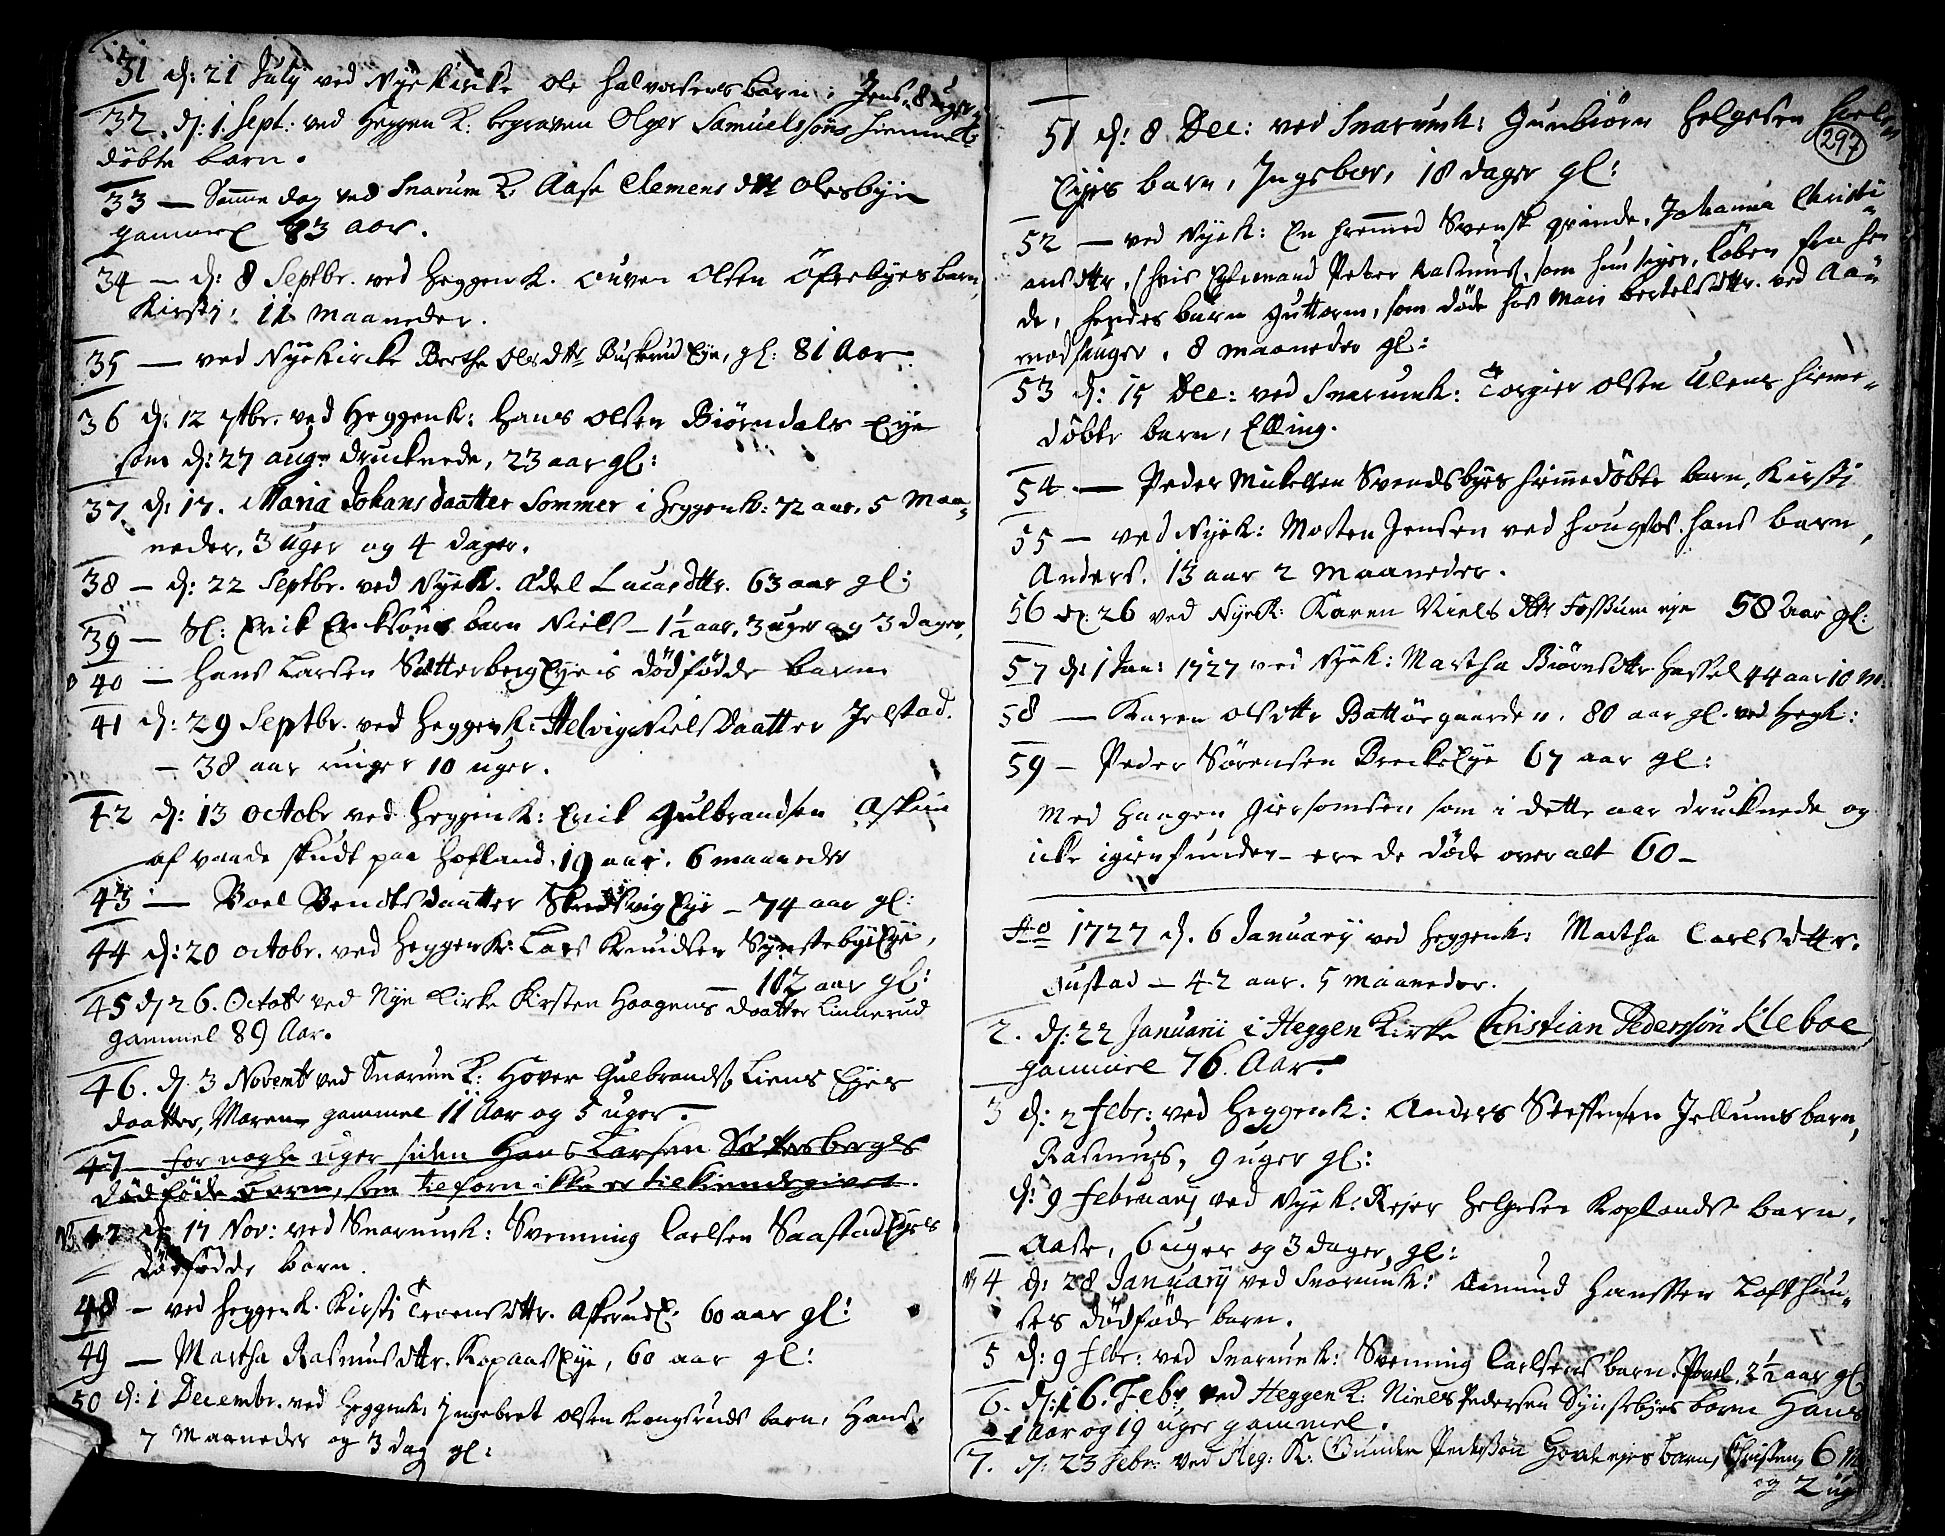 31 d: 21 July ved Nykirke Ole Halvorsens barn, Jens, 8 uger
32. d: 1 Sept: ved Heggen K: begraven Olger Samuelssöns hiemme
döbte barn.
33 — Samme dag ved Snarum K. Aase Clemens dttr Olesbyie
gammel 83 aar.
34 — d: 8 Septbr. ved Heggen K. Ouven Olsen Öfrebyes barn
Kirsti, 11 maaneder.
35 — ved Nyekircke Berthe Olsdttr Buskerud Eje, gl: 81 Aar
36 d: 12 7tbr. ved Heggenk: Hans Olsen Biörndals Eye
som d: 27 aug. drucknede, 23 aar gl:
37 d: 17. Maria Johans daatter Sommer i Heggenk: 72 aar, 5 Maa-
neder, 3 uger og 4 dager.
38 — d: 22 Septbr. ved NyeK. Adel Lucasdttr. 63 aar gl:
39 — Sl: Erik Eriksöns barn Niels — 1½ aar, 3 uger og 3 dager
40 — Hans Larsen Sætterberg Eyeis dödfödde barn
41 d: 29 Septbr. ved Heggenk: Helvig Nielsdaatter Jelstad.
— 38 aar 10 uger.
42 d: 13 octobr ved Heggenk: Erick Gulbrandsen Askim
af vaade skudt paa Hofland. 19 aar. 6 maaneder
43 — Boel Bendtsdaatter Skredsvig Eye — 74 aar gl:
44 d: 20 octobr. ved Heggenk: Lars Knudsen Synstebye Eye,
— 102 aar gl:
45 d 26. Octobr ved Nye Kirke Kirsten Haagens daatter Linnerud
gammel 89 Aar.
46. d. 3 Novembr ved Snarum K: Hover Gulbrands. Liens Eyes
daatter, Maren gammel 11 Aar og 5 uger.
47 for nogle uger siden Hans Larsen Sættersberges
dödföde barn, som tilforn ikke er tilkiendegivet.
NB 47 d: 17 Nov: ved Snarumk: Svenning Carlsen Saastad Eyes
dödfödde barn.
48 — ved Heggenk. Kirsti Troensdttr. Askerud E. 60 aar gl:
49 — Martha Rasmusdttr. Kopaas Eye, 60 aar gl:
50 d: 1 Decembr. ved Heggenk: Ingebret Olsen Kongsruds barn, Hans,
7 Maaneder og 3 dag gl:
297
51 d: 8 Dec: ved Snarumk: Gunbiörn Helgesen
Eyes barn, Ingebor, 18 dager gl:
52 — ved NyeK: En fremmed Svensk qvinde, Johanna Christi
ansdttr. (hvis Egtemand Peter Rasmus, som hun siger, löben fra hen
de, hendes barn Guttorm, som döde hos Mari bertelsdttr. ved Aa
8 maaneder gl:
53 d: 15 Dec: ved Snarumk: Torgier Olsen Ulens hieme-
döbte barn, Elling.
54 — Peder Mikelsen Svendsbyes hiemedöbte barn, Kirsti
55 — ved NyeK: Morten Jensen ved Hougfos. hans barn,
Anders. 13 aar 2 maaneder.
56 d. 26 ved Nyek: Karen Nielsdttr Fossum eje 58 aar gl:
57 d: 1 Jan: 1727 ved Nyek: Martha Biörnsdttr Hassel 44 aar 10 M.
58 — Karen Olsdttr Battörgaarden. 80 aar gl. ved Hegk:
59 — Peder Sörensen Brecke Eye 67 aar gl:
Med Haagen Giersomsen som i dette aar drucknede og
icke igienfunden — ere de döde over alt 60 —
Ao 1727 d. 6 January ved Heggenk: Martha Carlsdttr.
Justad — 42 aar. 5 maaneder.
2. d: 22 Januarii i Heggen Kirke Christian Pederssön Kleboe,
gammel 76. Aar.
3 d: 2 febr: ved Heggenk: Anders Steffensen Jellums barn,
Rasmus, 9 uger gl:
d: 9 February ved Nyek: Rejer Helgesen Koplands barn,
— Aase, 6 uger og 3 dager, gl:
NB 4 d: 28 January ved Snarumk: Amund Hansen Lofthuu-
ses dödföde barn.
5 d: 9 febr: ved Snarumk: Svenning Carlsens barn, Povel, 2½ aar gl
6. d: 16. Febr ved Heggen K: Niels Pedersen Synstebyes barn Hans
1 Aar og 19 uger gammel.
7. d: 23 Febr: ved Heg: K: Gunder Pederssön barn, Christen, 6
og 2 ug